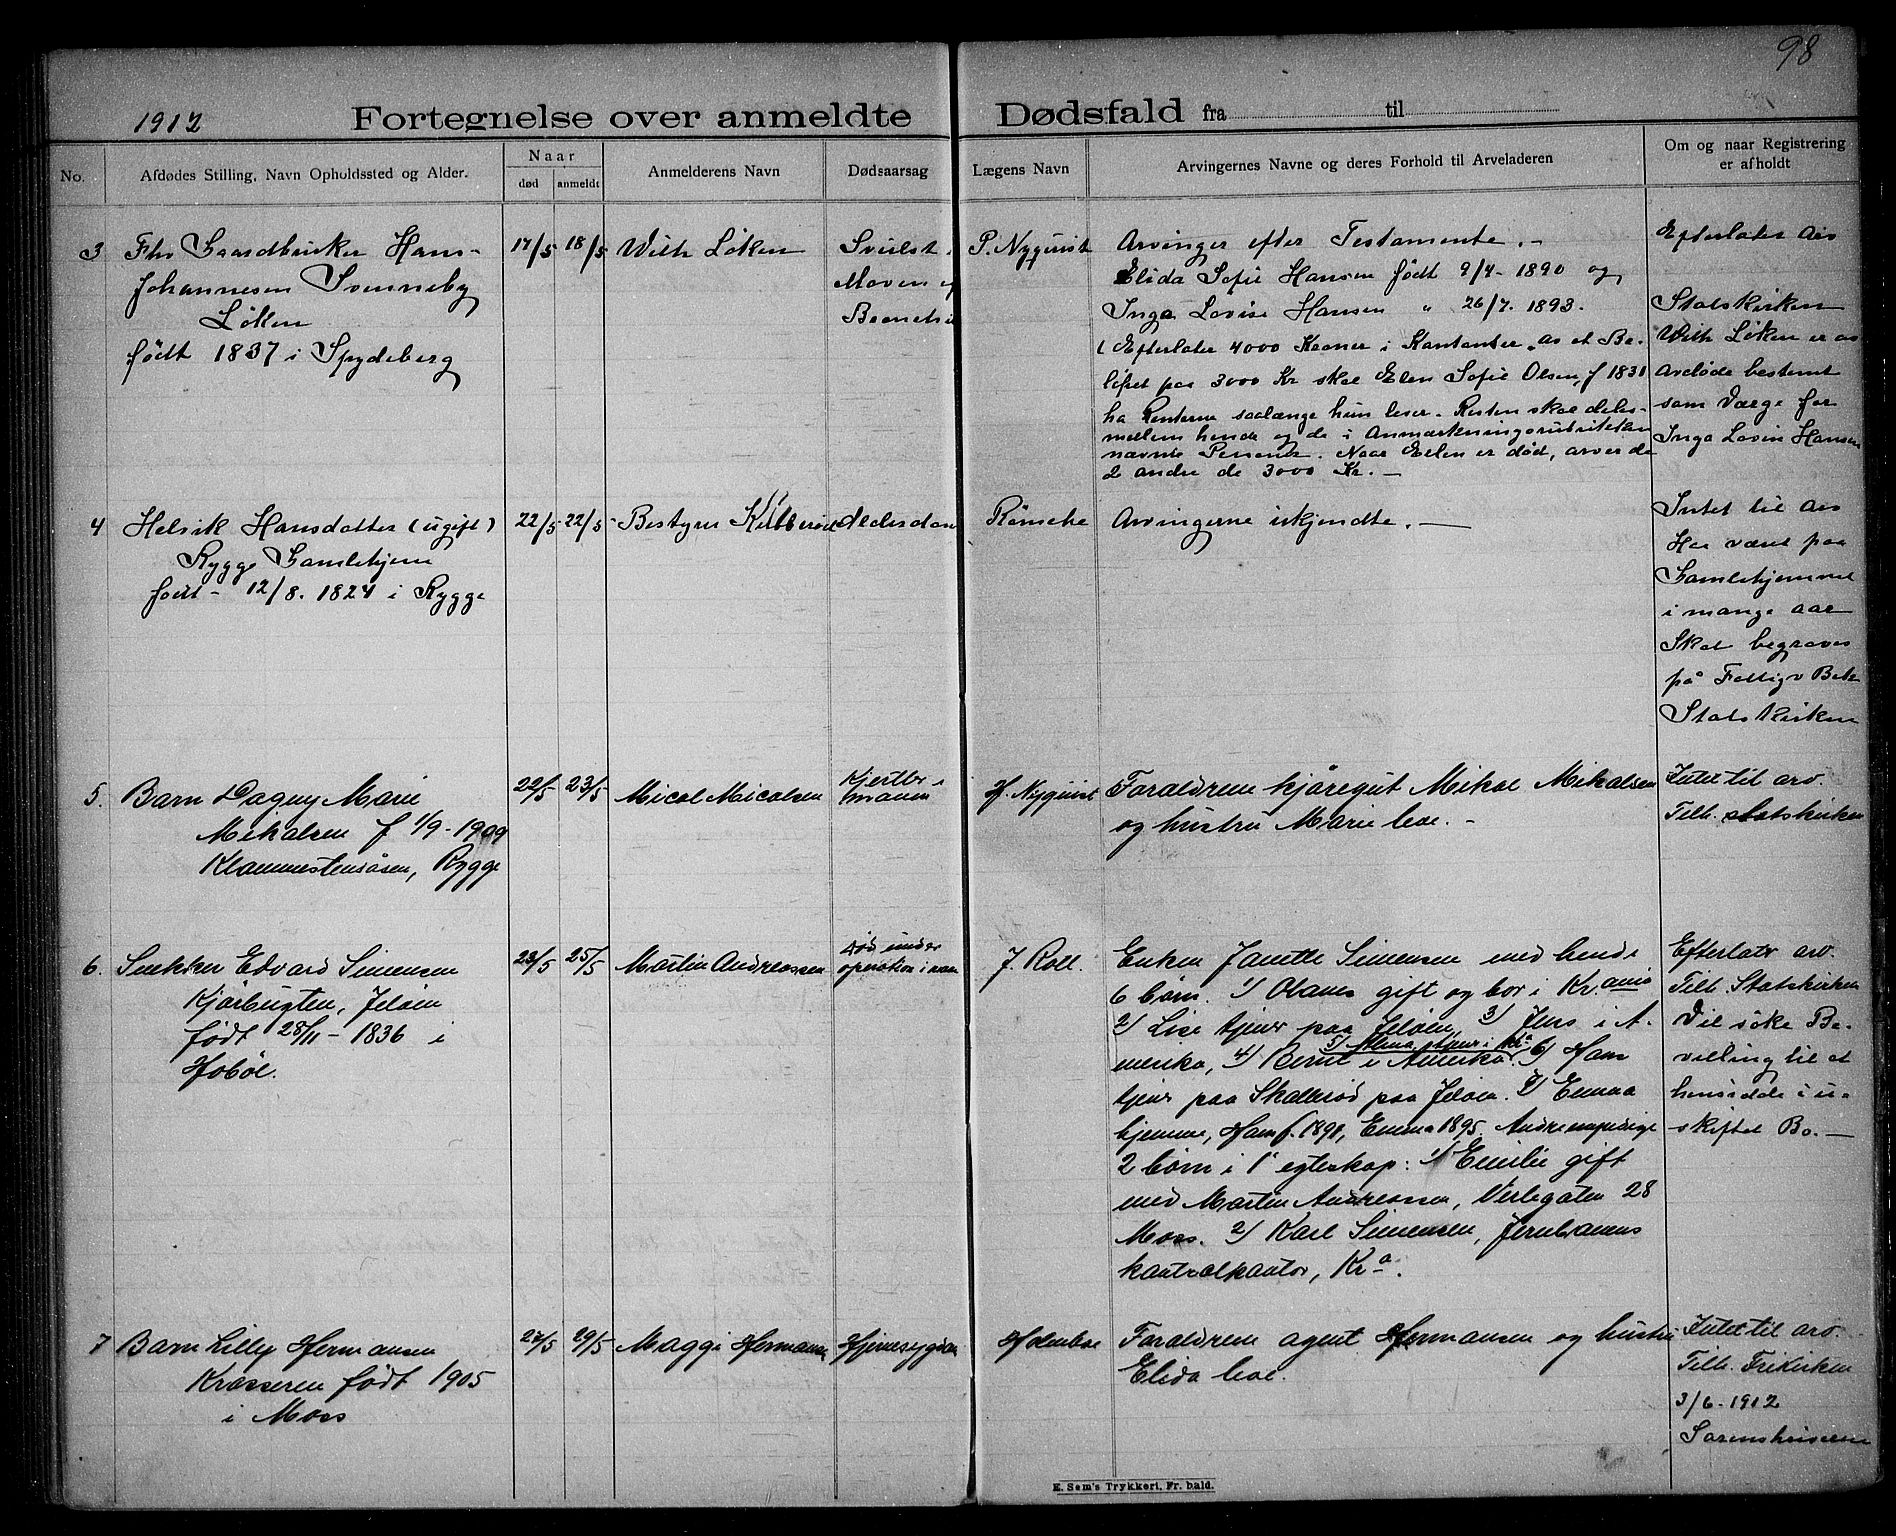 98
1912
Fortegnelse over anmeldte Dødsfald fra til
No.
Afdødes Stilling, Navn Opholdssted og Alder.
Naar
død
anmeldt
Anmelderens Navn
Dødsaarsag
Lægens Navn
Arvingernes Navne og deres Forhold til Arveladeren
Om og naar Registrering
er afholdt
3
Fhv Gaardbruker Hans
Johannesen Svenneby
Løken
født 1837 i Spydeberg
17/5
18/5
Wilh Løken
Svulst i
Maven og
P. Nyquist
Arvinger efter Testamente. –
Elida Sofie Hansen født 9/4 - 1890 og
Inga Lovise Hansen " 26/7. 1893.
( Efterlater 4000 Kroner i Kontanter, av et Be-
løpet paa 3000 Kr skal Elen Sofie Olsen, f 1831
ha Renterne saalænge hun lever. Resten skal deles
mellem hende og de i Anmærkningsrubrikken
nævnte Personer. Naar Elen er død, arver de
2 andre de 3000 Kr. –
Efterlater Arv
Statskirken
Wilh Løken er av
Avdøde bestemt
som Værge for
Inga Lovise Hansen
4
Helvik Hansdatter (ugift)
Rygge Gamlehjem
født - 12/8. 1824 i Rygge
22/5
22/5
Bestyrer
Alderdom
Rømcke
Arvingerne ukjendte. –
Intet til Arv
Har været paa
Gamlehjemmet
i mange aar
Skal begraves
på Fattigv Bek
Statskirken
5.
Barn Dagny Marie
Mikalsen f 1/9 - 1909
Klommestensåsen, Rygge
22/5
23/5
Micol Micalsen
Kjertler i
maven
H. Nyquist
Forældrene kjöregut Mikal Mikalsen
og hustru Marie leve. –
Intet til arv.
Tilh. statskirken
6.
Snekker Edvard Simensen
Kjørbugten, Jeløen
født 28/11 - 1836 i
Hobøl.
23/5
25/5
Martin Andreassen
död under
operation i
J. Roll.
Enken Janette Simensen med hende
6 børn. 1) Olaves gift og bor i Kr.ania
2) Lise tjener paa Jeløen, 3) Jens i A-
5) Alma, tjener i Kra
merika, 4) Bernt i Amerika. 6) Hans
tjener paa Skallerød paa Jeløen. 7) Emma
hjemme, Hans f. 1891, Emma 1895. Andre myndige
2 børn i 1' egteskap: 1) Emilie gift
med Martin Andreassen, Verlegaten 28
Moss. 2) Karl Simensen, Jernbanens
kontrolkontor, Kra.
Efterlatr arv.
Tilh. Statskirken
Vil söke Be-
villing til at
hensidde i u-
skiftet Bo. –
7
Barn Lilly Hermansen
Krosseren født 1905
i Moss
27/5
29/5
Maggi Hermansen
Hjernesygdom
Holmboe
Forældrene agent Hermansen og hustru
Elida leve.
Intet til arv.
Tilh. Frikirken
3/6 - 1912
Sorenskriveren
E. Sem's Trykkeri, Fr.hald.